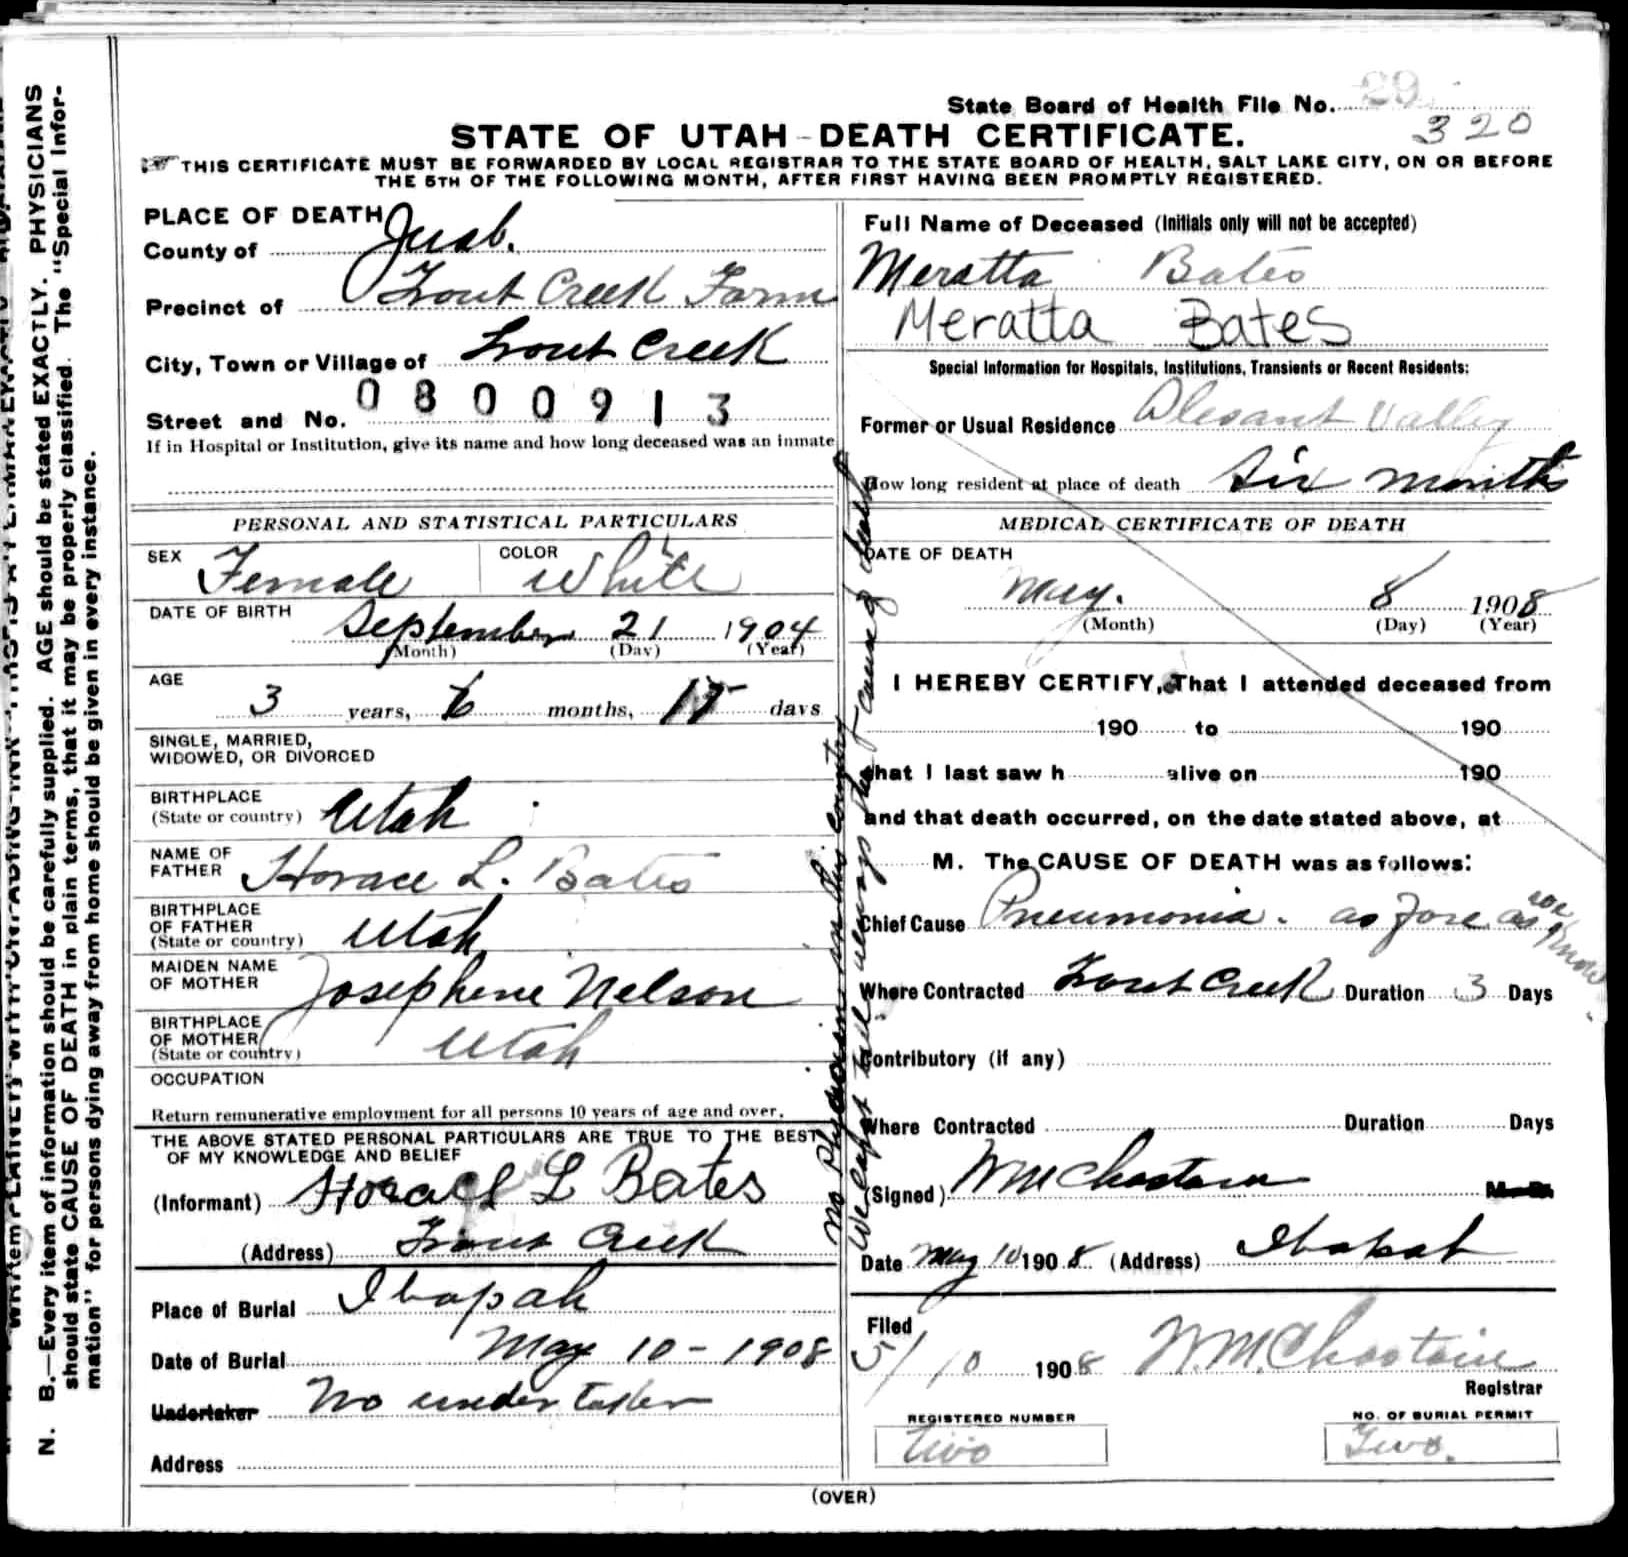 State Board of Health File No. 29
320
STATE OF UTAH - DEATH CERTIFICATE.
THIS CERTIFICATE MUST BE FORWARDED BY LOCAL REGISTRAR TO THE STATE BOARD OF HEALTH, SALT LAKE CITY, ON OR BEFORE
THE 5TH OF THE FOLLOWING MONTH, AFTER FIRST HAVING BEEN PROMPTLY REGISTERED.
PLACE OF DEATH
County of Juab.
Precinct of Trout Creek Farm
City, Town or Village of Trout Creek
Street and No. 0800913
If in Hospital or Institution, give its name and how long deceased was an inmate
PERSONAL AND STATISTICAL PARTICULARS
SEX Female COLOR White
DATE OF BIRTH
September 21 1904
(Month) (Day) (Year)
AGE
3 years, months, days
SINGLE, MARRIED,
WIDOWED, OR DIVORCED
BIRTHPLACE
(State or country) Utah
NAME OF
FATHER Horace L. Bates
BIRTHPLACE
OF FATHER
(State or country) Utah
MAIDEN NAME
OF MOTHER Josephine Nelson
BIRTHPLACE
OF MOTHER
(State or country) Utah
OCCUPATION
Return remunerative employment for all persons 10 years of age and over.
THE ABOVE STATED PERSONAL PARTICULARS ARE TRUE TO THE BEST
OF MY KNOWLEDGE AND BELIEF
(Informant) Horace L Bates
(Address) Trout Creek
Place of Burial Ibapah
Date of Burial May 10 - 1908
Undertaker No undertaker
Address
Full Name of Deceased (Initials only will not be accepted)
Meratta Bates
Meratta Bates
Special Information for Hospitals, Institutions, Transients or Recent Residents:
Former or Usual Residence Plesant Valley
How long resident at place of death Six months
MEDICAL CERTIFICATE OF DEATH
DATE OF DEATH
May. 8 1908
(Month) (Day) (Year)
I HEREBY CERTIFY, That I attended deceased from
190 to 190
that I last saw h alive on 190
and that death occurred, on the date stated above, at
M. The CAUSE OF DEATH was as follows:
Chief Cause Pneumonia. as fore as we know
Where Contracted Trout Creek Duration 3 Days
Contributory (if any)
Where Contracted Duration Days
(Signed) Wm Chastain M. D.
Date May 10 1908 (Address) Ibapah
Filed
5/10 1908 W.M. Chastain
Registrar
REGISTERED NUMBER
two
NO. OF BURIAL PERMIT
Two.
(OVER)
No Physician in this country
N. B.—Every item of information should be carefully supplied. AGE should be stated EXACTLY. PHYSICIANS
should state CAUSE OF DEATH in plain terms, that it may be properly classified. The "Special Infor-
mation" for persons dying away from home should be given in every instance.